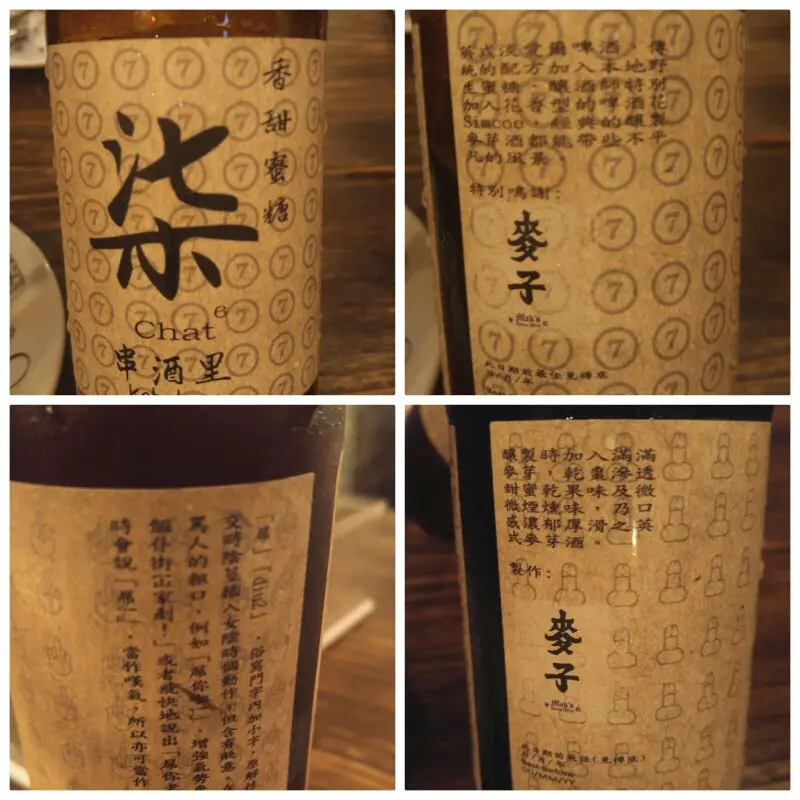 香甜蜜糖
柒
Chat⁶
串酒里
英式淡愛爾啤酒，傳
統的配方加入本地野
生蜜糖，釀酒師特別
加入花香型的啤酒花
Simcoe，經典的釀製
麥芽酒都能帶些不平
凡的風景。
特別鳴謝：
麥子
Mak's
此日期前最佳見樽底
日/月/年
「屌」「diu2」，俗寫門字內加小字，原解作
交時陰莖插入女陰時個動作，但含有貶意，
罵人的粗口，例如「屌你」，增強氣勢
個仆街冚家剷！」或者飛快地說出「屌你老
時會說「屌」，當作嘆氣，所以亦可當作
釀製時加入滿滿
麥芽，乾棗滲透
甜蜜乾果味及微
微煙燻味，乃口
感濃郁厚滑之英
式麥芽酒。
製作：
麥子
Mak's
此日期前最佳(見樽底)
日/月/年
Best Before
DD/MM/YY